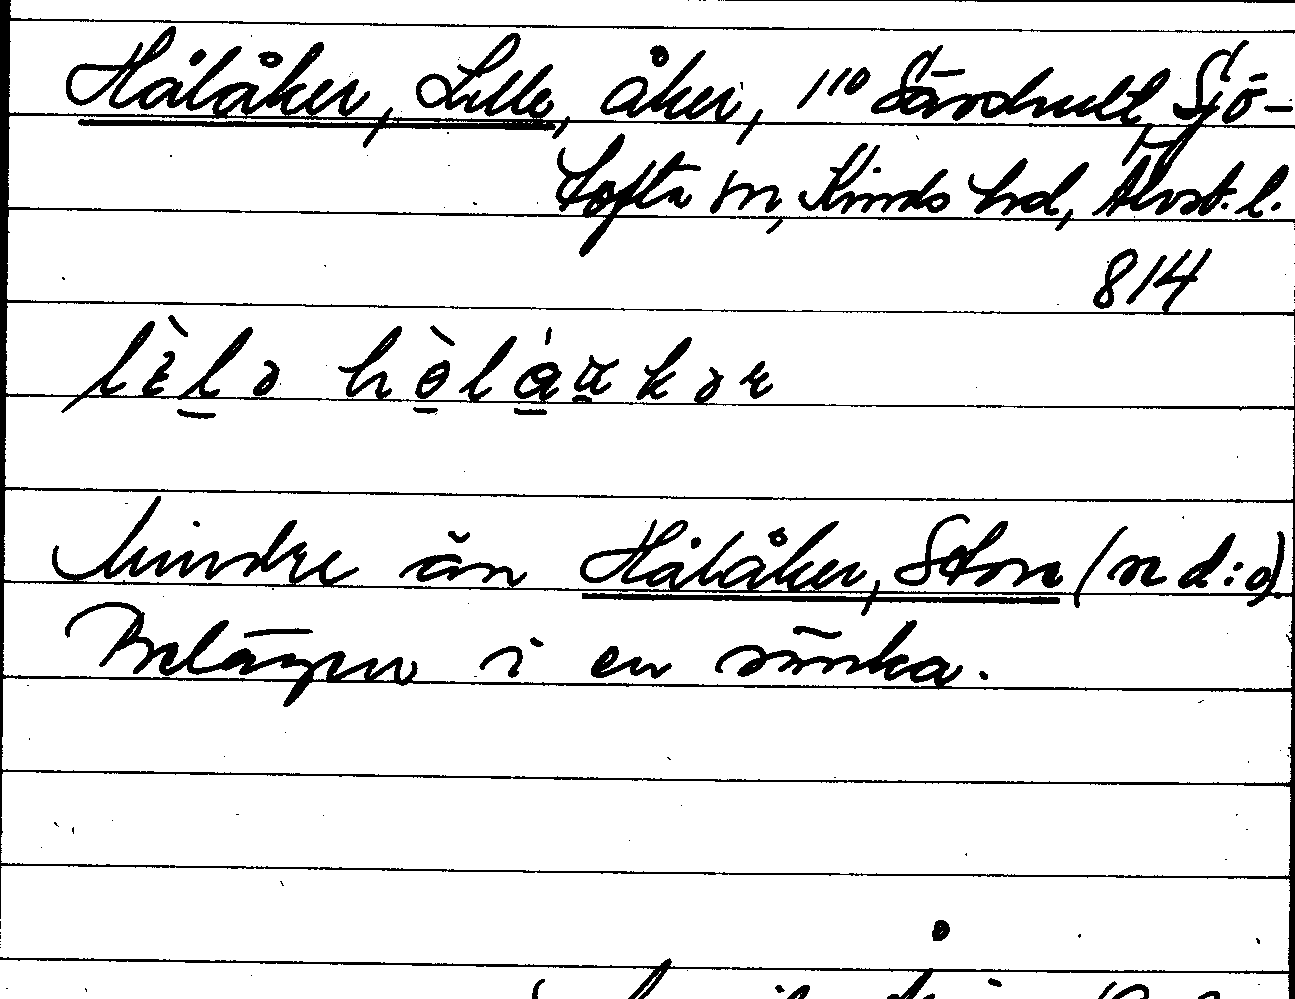 Hålåker, Lille, åker, 1¹⁰ Särdhult, Sjö-
tofta sn, Kinds hd, Älvsb. l.
814
Mindre än Hålåker, Stora (se d:o).
Belägen i en sänka.